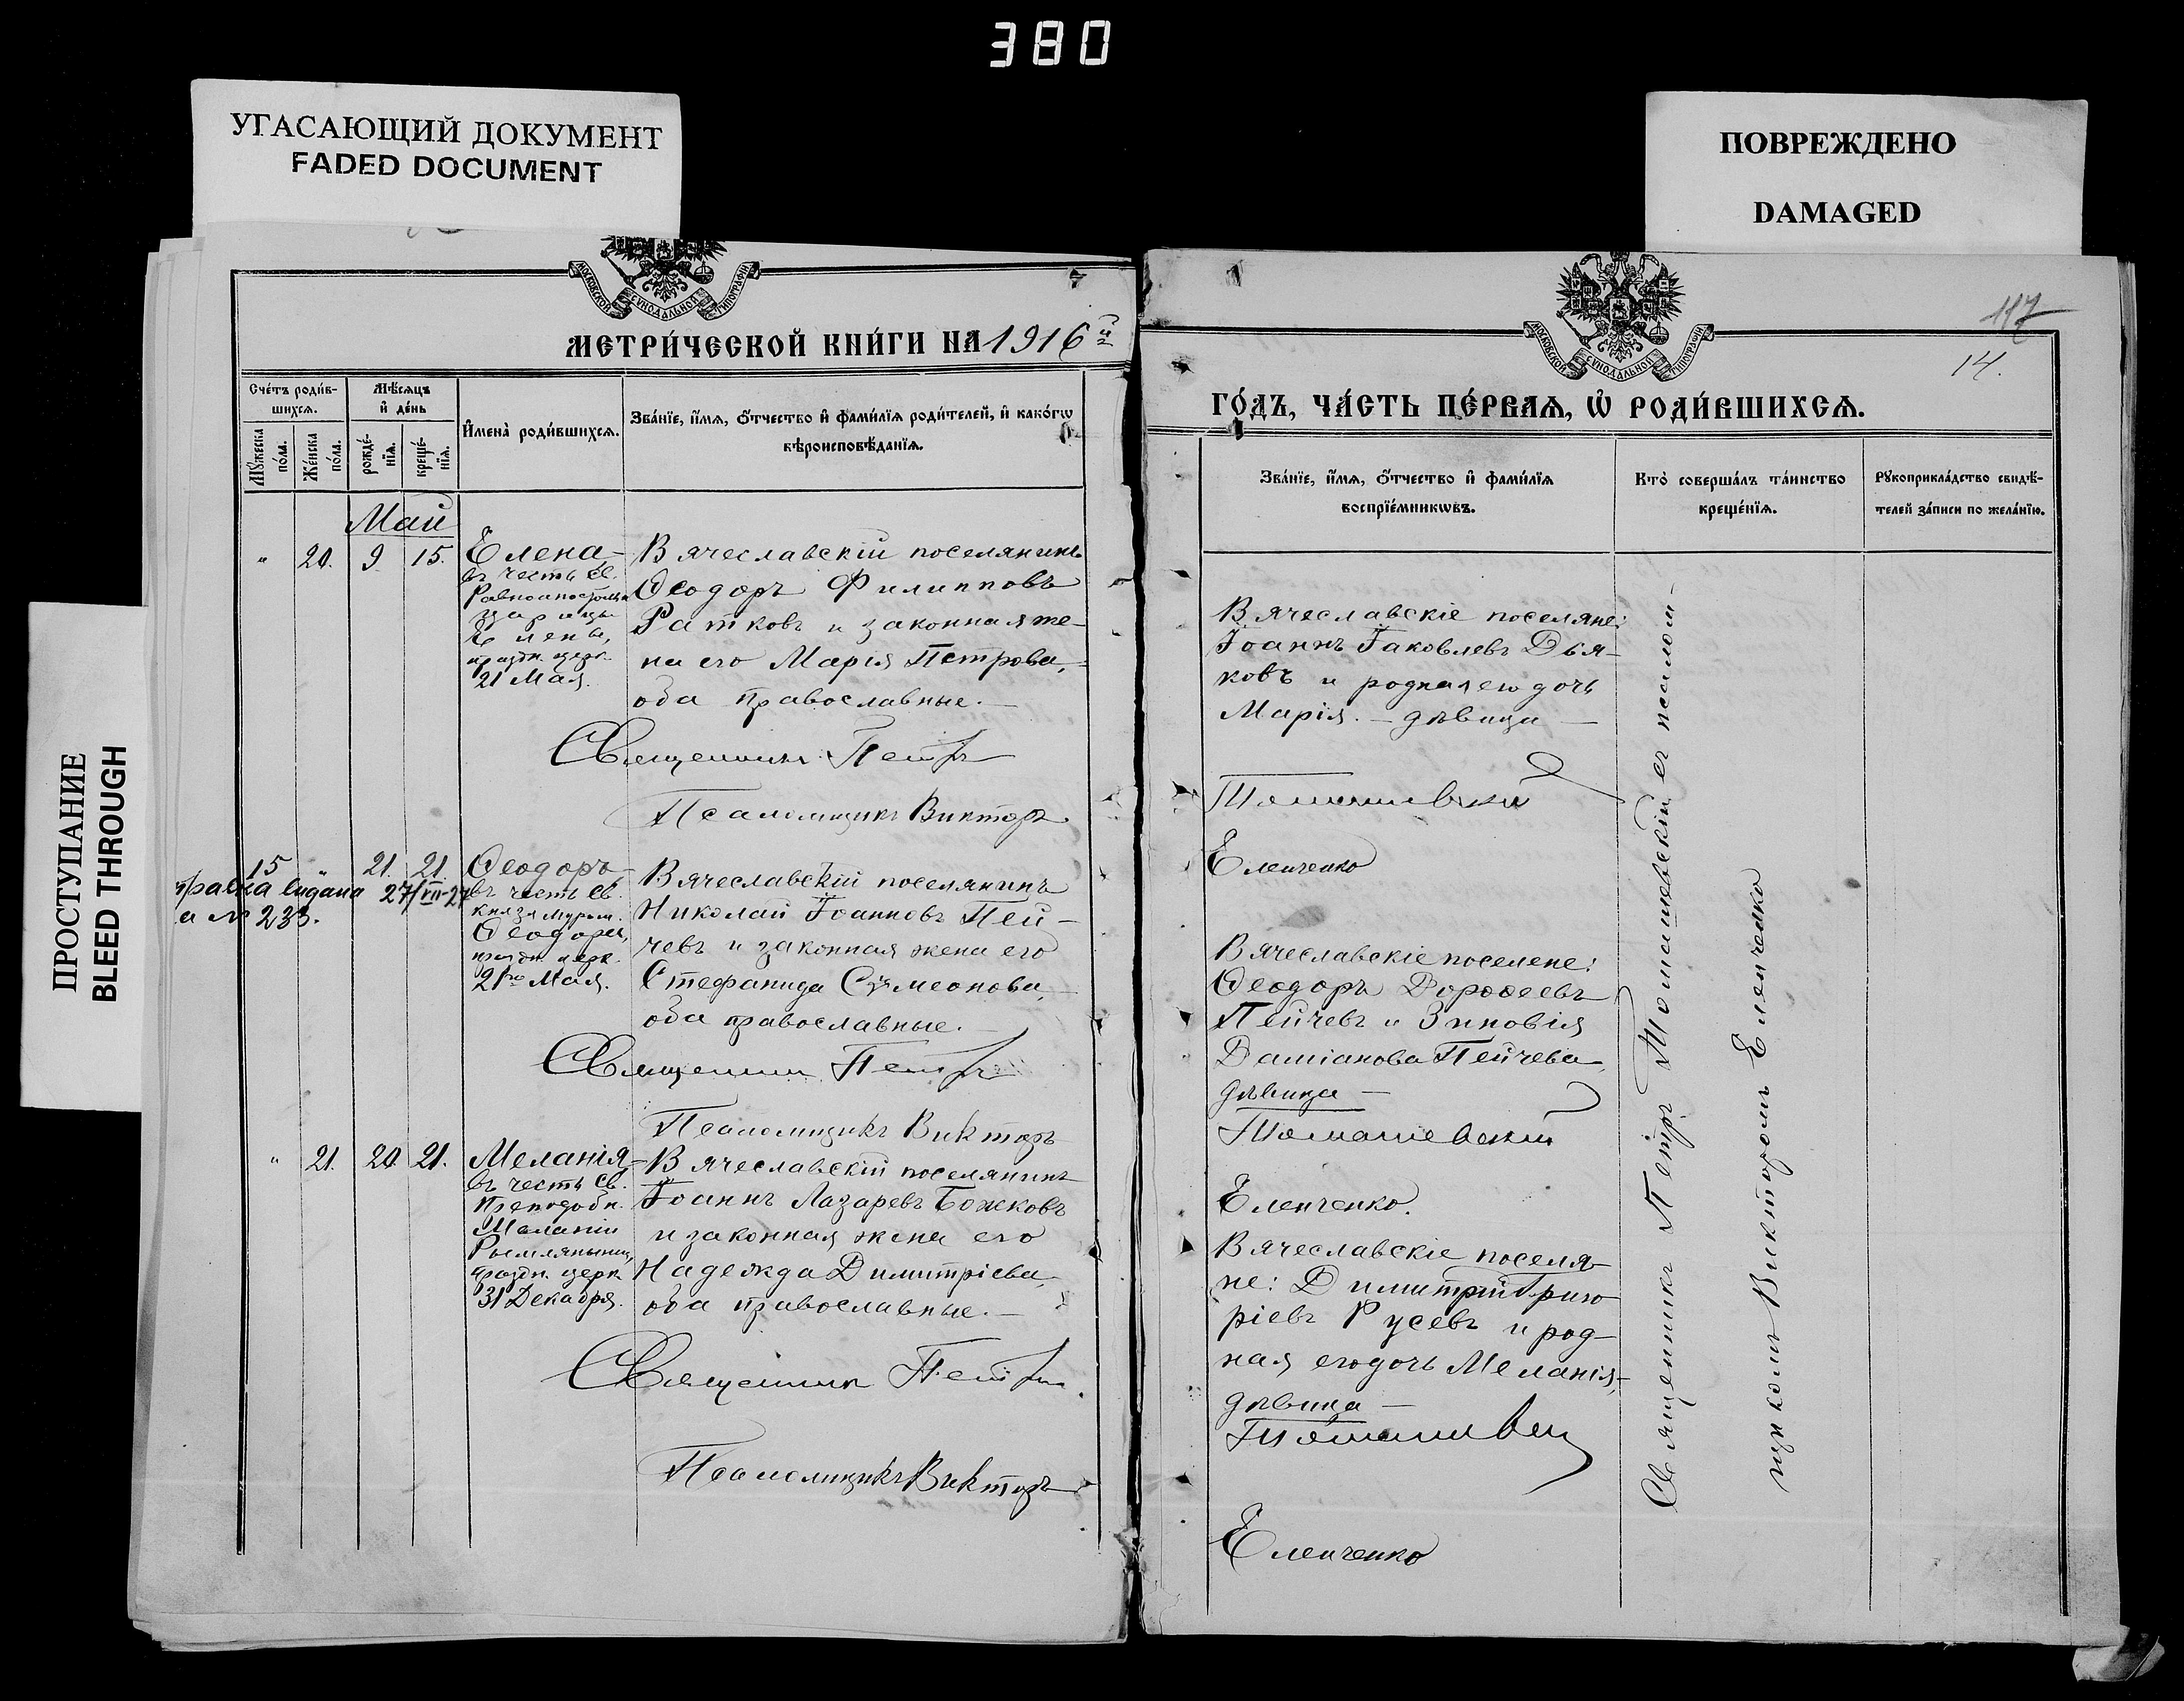 380
УГАСАЮЩИЙ ДОКУМЕНТ
FADED DOCUMENT
ПОВРЕЖДЕНО
DAMAGED
ПРОСТУПАНИЕ
BLEED THROUGH
МОСКОВСКОЙ СѴНОДАЛЬНОЙ ТИПОГРАФІИ
МЕТРИ́ЧЕСКОЙ КНИ́ГИ НА 1916й
Сче́тъ роди́в-
шихсѧ.
Мѣ́сѧцъ
и҆ де́нь
Мꙋ́жеска
по́ла.
Же́нска
по́ла.
рожде́-
нїѧ.
креще́-
нїѧ.
И҆мена̀ роди́вшихсѧ.
Зва́нїе, и҆́мѧ, ѻ҆́тчество и҆ фами́лїѧ роди́телей, и҆ како́гѡ
вѣроисповѣ́данїѧ.
Май
" 20. 9 15.
Елена-
въ честь св.
Равноапостольн.
царицы
Елены,
праздн. церк.
21 Мая.
Вячеславскій поселянинъ
Ѳеодоръ Филипповъ
Ратковъ и законная же-
на его Марія Петрова,
оба православные.-
Священникъ Петръ
Псаломщикъ Викторъ
15 " 21. 21.
справка выдана 27/VII-27
за № 233.
Ѳеодоръ-
въ честь св.
князя Муром.
Ѳеодора,
праздн. церк.
21го Мая.
Вячеславскій поселянинъ
Николай Іоанновъ Пей-
чевъ и законная жена его
Стефанида Сѵмеонова,
оба православные.-
Священникъ Петръ
Псаломщикъ Викторъ
" 21. 20 21.
Меланія-
въ честь св.
Преподобн.
Меланіи
Римляныни,
праздн. церк
31 Декабря.
Вячеславскій поселянинъ
Іоаннъ Лазаревъ Божковъ
и законная жена его
Надежда Димитріева,
оба православные.-
Священникъ Петръ
Псаломщикъ Викторъ
117
14.
МОСКОВСКОЙ СѴНОДАЛЬНОЙ ТИПОГРАФІИ
ГО́ДЪ, ЧА́СТЬ ПЕ́РВАѦ, Ѡ҆ РОДИ́ВШИХСѦ.
Зва́нїе, и҆́мѧ, ѻ҆́тчество и҆ фами́лїѧ
воспрїе́мникѡвъ.
Кто̀ соверша́лъ та́инство
креще́нїѧ.
Рꙋкоприкла́дство свидѣ́-
телей за́писи по жела́нїю.
Вячеславскіе поселяне:
Іоаннъ Іаковлевъ Дья-
ковъ и родная его дочь
Марія.- дѣвица-
Томашевскій
Еленченко
Вячеславскіе поселене:
Ѳеодоръ Дороѳеевъ
Пейчевъ и Зиновія
Даміанова Пейчева,
дѣвица-
Томашевскій
Еленченко.
Вячеславскіе поселя-
не: Димитрій Григо
ріевъ Русевъ и род-
ная его дочь Меланія,-
дѣвица-
Еленченко
Священникъ Петръ Томашевскій съ псалом-
щикомъ Викторомъ Еленченко